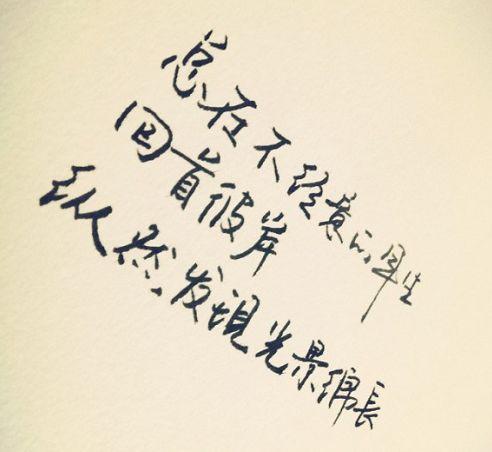 总在不经意的年生
回首彼岸
纵然发現光景绵長